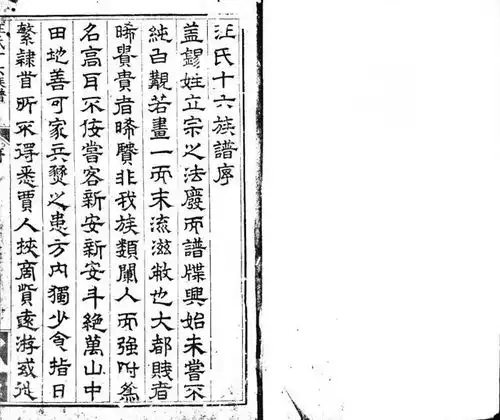 汪氏十六族譜序
盖錫姓立宗之法廢而譜牒興始未嘗不
純白觀若畫一而末流滋敝也大都賤者
晞貴貴者晞賢非我族類闌人而強附為
名高耳不佞嘗客新安新安斗絶萬山中
田地善可家兵燹之患方内獨少食指日
繁隷首所不得悉賈人挾商貲遠游或徙
汪氏十六族譜
序